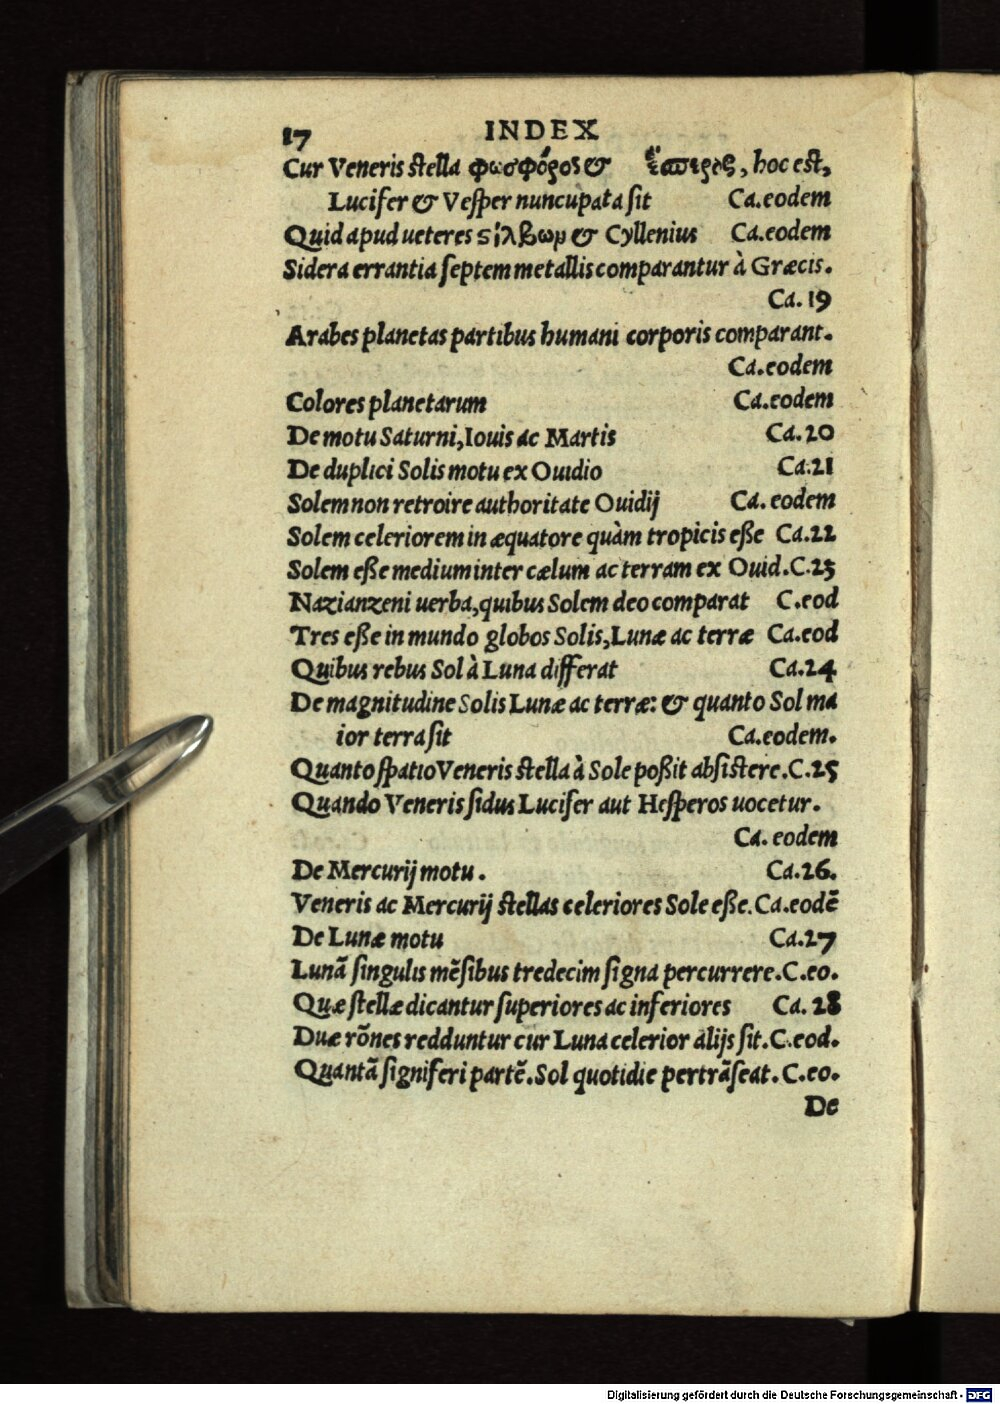 17 INDEX
Cur Veneris stella φωσφόρος & ἕσπερος, hoc est,
Lucifer & Vesper nuncupata sit Ca.eodem
Quid apud ueteres ςίλβωρ & Cyllenius Ca.eodem
Sidera errantia septem metallis comparantur à Græcis.
Ca. 19
Arabes planetas partibus humani corporis comparant.
Ca.eodem
Colores planetarum Ca.eodem
De motu Saturni, Iouis ac Martis Ca.20
De duplici Solis motu ex Ouidio Ca.21
Solem non retroire authoritate Ouidij Ca. eodem
Solem celeriorem in æquatore quàm tropicis eße Ca.22
Solem eße medium inter cælum ac terram ex Ouid.C.23
Nazianzeni uerba, quibus Solem deo comparat C.eod
Tres eße in mundo globos Solis, Lunæ ac terræ Ca.eod
Quibus rebus Sol à Luna differat Ca.24
De magnitudine Solis Lunæ ac terræ: & quanto Sol ma
ior terra sit Ca.eodem.
Quanto spatio Veneris stella à Sole poßit absistere.C.25
Quando Veneris sidus Lucifer aut Hesperos uocetur.
Ca. eodem
De Mercurij motu. Ca.26.
Veneris ac Mercurij stellas celeriores Sole eße.Ca.eodē
De Lunæ motu Ca.27
Lunā singulis mēsibus tredecim signa percurrere.C.eo.
Quæ stellæ dicantur superiores ac inferiores Ca. 28
Duæ rōnes redduntur cur Luna celerior alijs sit.C.eod.
Quantā signiferi partē.Sol quotidie pertrāseat.C.eo.
De
Digitalisierung gefördert durch die Deutsche Forschungsgemeinschaft - DFG